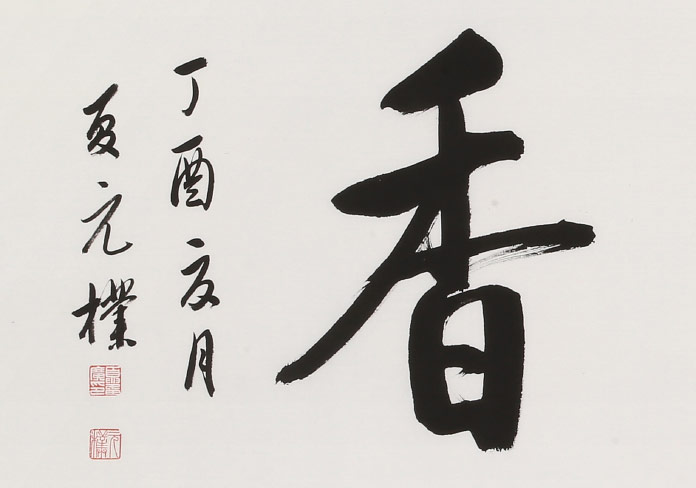 香
丁酉夏月
夏元樸